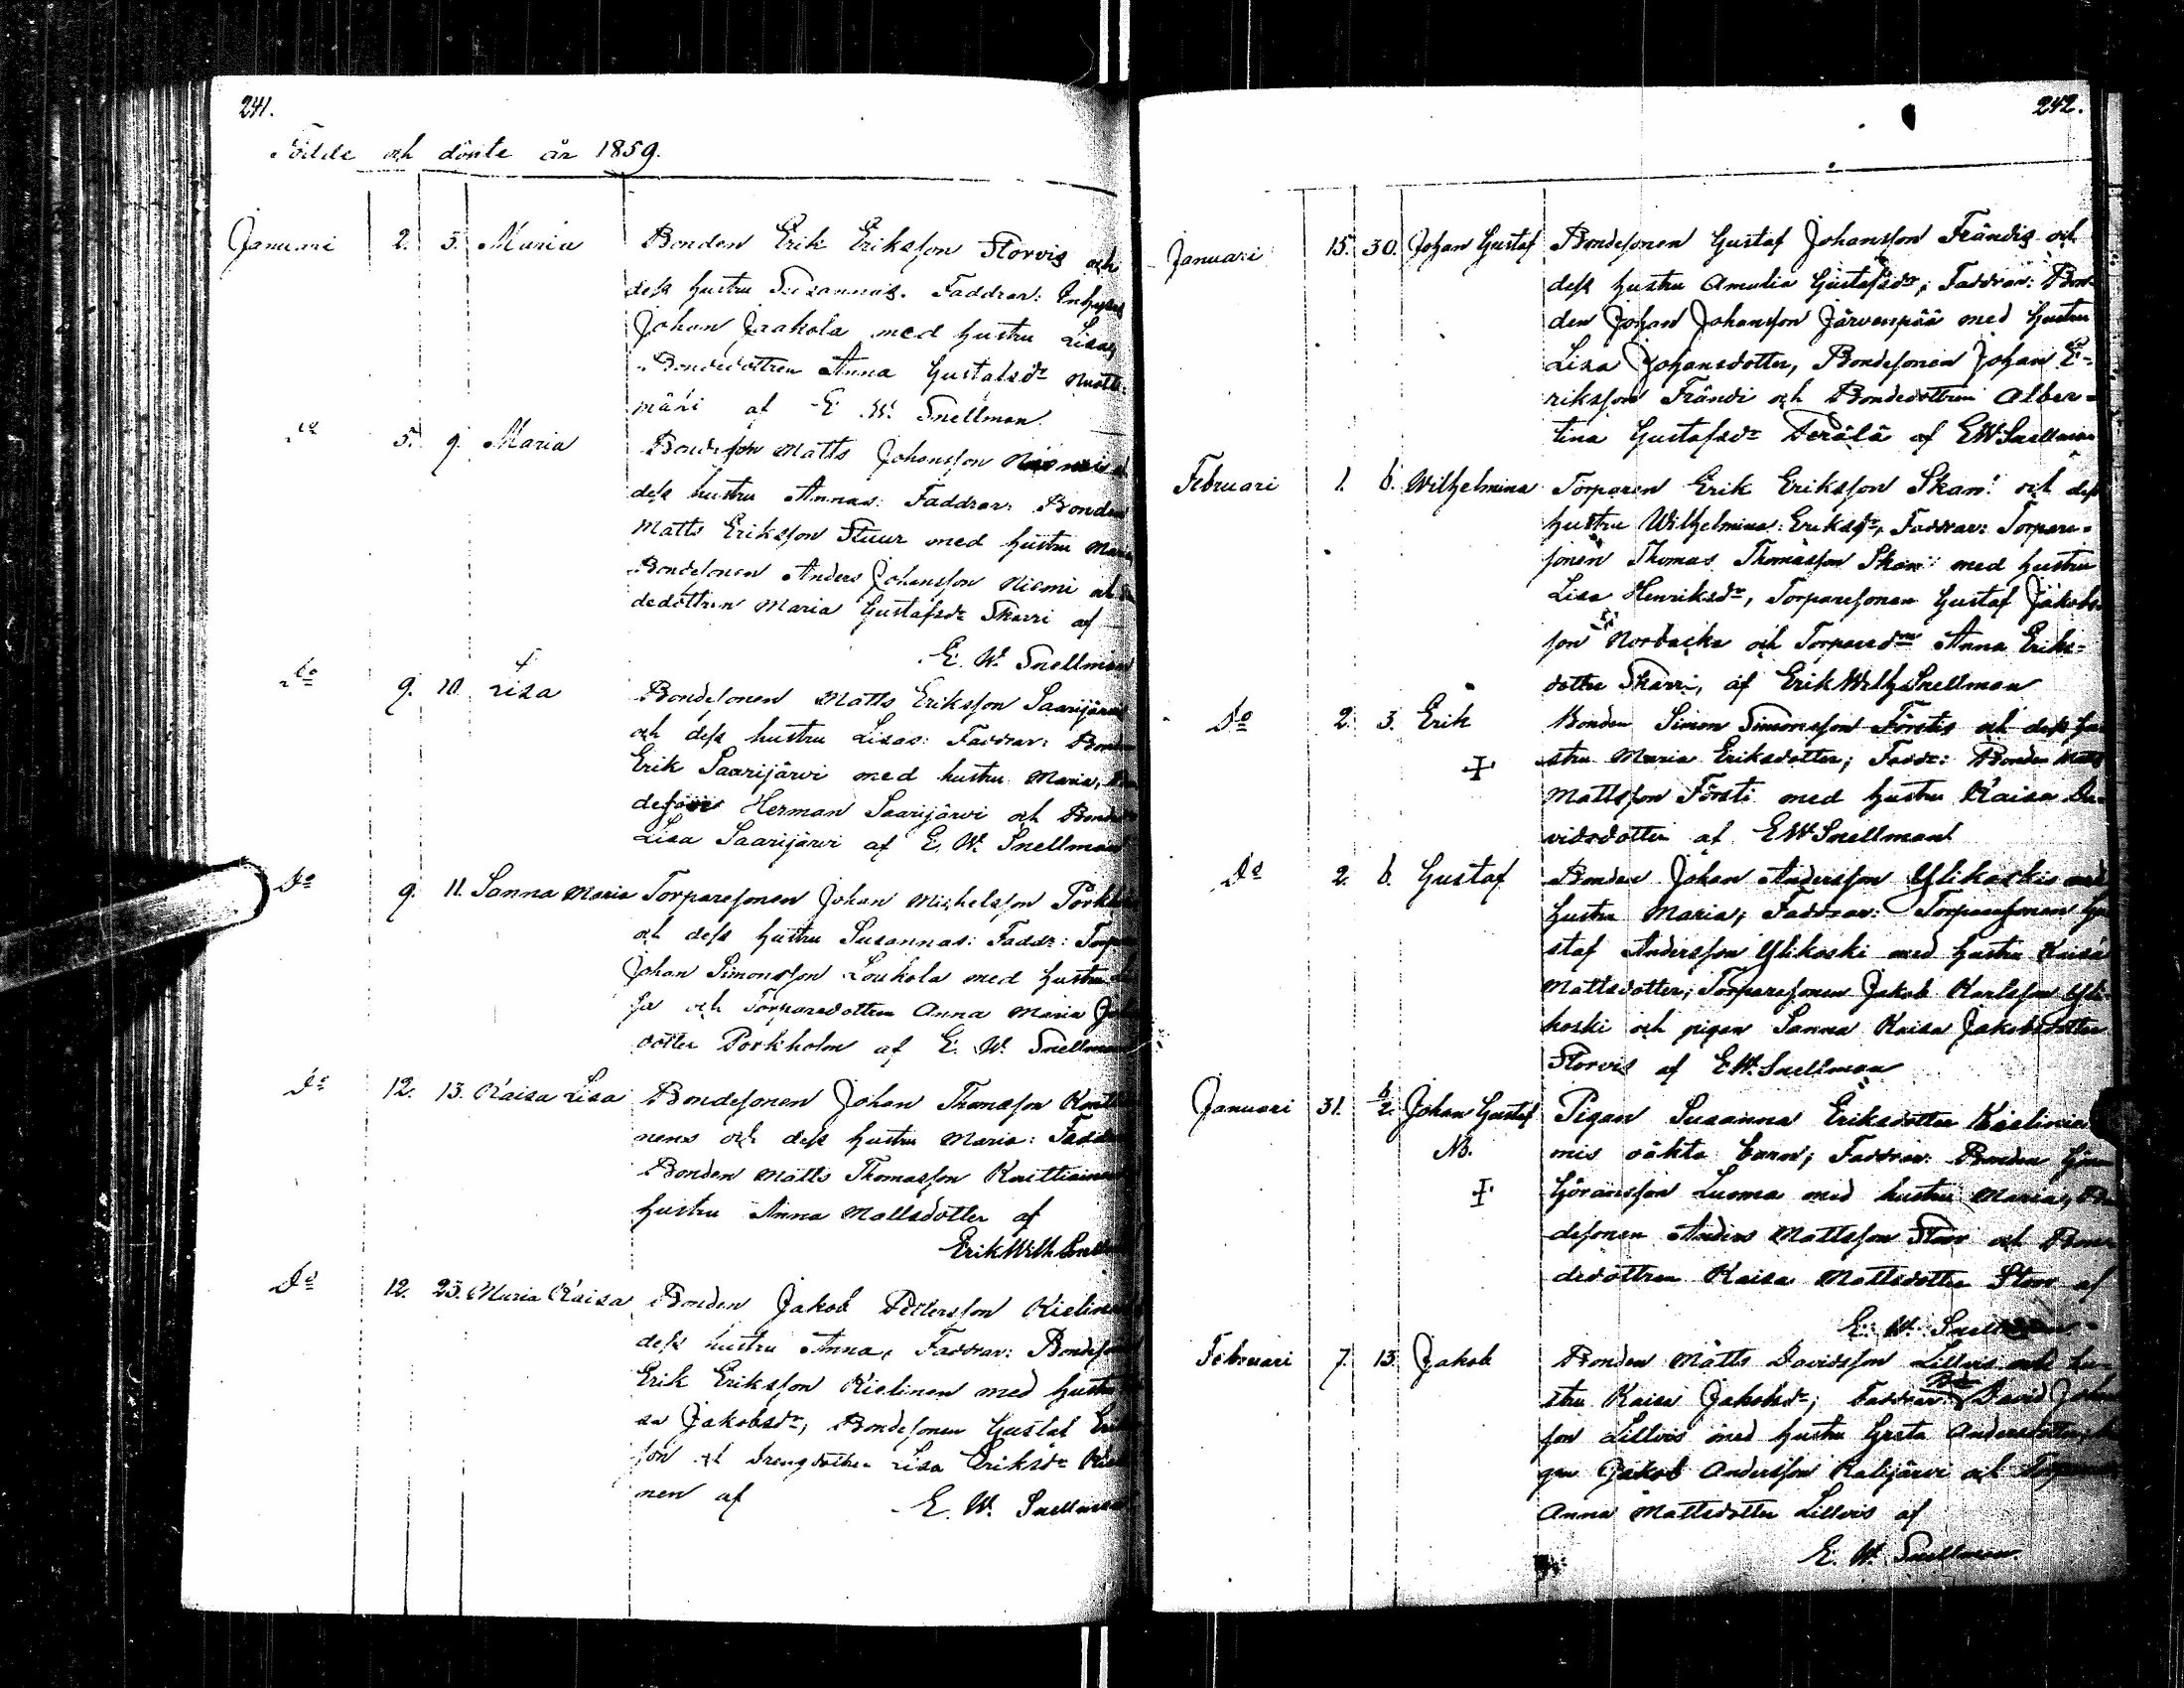 241.
Födde och döpte år 1859.
Januari 2. 5. Maria Bonden Erik Eriksson Storvis och
dess hustru Susannas. Faddrar: Inhyses
Johan Jaakola med hustru Lisa,
Bondedottren Anna Gustafsdr
mäki af E. W. Snellman.
do 5. 9. Maria Bondeson Matts Johansson Niemi
dess hustru Annas: Faddrar: Bonden
Matts Eriksson Stuur med hustru Maria,
Bondesonen Anders Johansson Niemi och
dedottren Maria Gustafsdr Skarri af
E. W. Snellman
do 9. 10. Lisa Bondesonen Matts Eriksson Saarijärvi
och dess hustru Lisas: Faddrar: Bonden
Erik Saarijärvi med hustru Maria,
Herman Saarijärvi och
Lisa Saarijärvi af E. W. Snellman
Do 9. 11. Sanna Maria Torparesonen Johan Michelsson
och dess hustru Susannas: Faddr: Torp
Johan Simonsson Loukola med hustru
sa och Torparedottren Anna Maria
dotter Porkholm af E. W. Snellman
Do 12. 13. Kaisa Lisa Bondesonen Johan Thomasson
nens och dess hustru Maria: Faddr
Bonden Matts Thomasson
hustru Anna Mattsdotter af
Erik Wilh Snellman
Do 12. 23. Maria Kaisa Bonden Jakob Pettersson Kielinen
dess hustru Anna, Faddrar: Bondeson
Erik Eriksson Kielinen med hustru
sa Jakobsdr, Bondesonen Gustaf
son och Lisa Eriksdr
nen af E. W. Snellman
242.
Januari 15. 30. Johan Gustaf Bondesonen Gustaf Johansson Frändis och
dess hustru Amalia Gustafsdr; Faddrar: Bon-
den Johan Johansson Järvenpää med hustru
Lisa Johansdotter, Bondesonen Johan E-
riksson Frändi och Bondedottren Alber-
tina Gustafsdr Perälä af EWSnellman
Februari 1. 6. Wilhelmina Torparen Erik Eriksson Skam och dess
hustru Wilhelmina Eriksdr, Faddrar: Torpare-
sonen Thomas Thomasson Skam med hustru
Lisa Henriksdr, Torparesonen Gustaf Jakobs-
son Norbacka och Anna Eriks-
dotter Skarri, af Erik Wilh Snellman
Do 2. 3. Erik Bonden Simon Simonsson Förstis och dess hu-
stru Maria Eriksdotter; Faddr: Bonden Matts
Mattsson Försti med hustru Kaisa Da-
vidsdotter af EWSnellman
Do 2. 6. Gustaf Bonden Johan Andersson Ylikoskis med
hustru Maria; Faddrar: Torparesonen Gu
staf Andersson Ylikoski med hustru Kaisa
Mattsdotter; Torparesonen Jakob Karlsson Yli-
koski och pigan Sanna Kaisa Jakobsdotter
Storvis af E.W. Snellman
Januari 31. 6/2. Johan Gustaf Pigan Susanna Eriksdotter
NB. mis oäkta barn; Faddrar: Bonden
Göransson Luoma med hustru Maria,
desonen Anders Mattsson Stoor och Bon
dedottren Kaisa Mattsdotter Stoor af
E. W. Snellman
Februari 7. 13. Jakob Bonden Matts Davidsson Lillvis och hu-
stru Kaisa Jakobsdr; Faddrar: David
son Lillvis med hustru Greta Andersdotter,
Jakob Andersson Kalijärvi och
Anna Mattsdotter Lillvis af
E. W. Snellman.